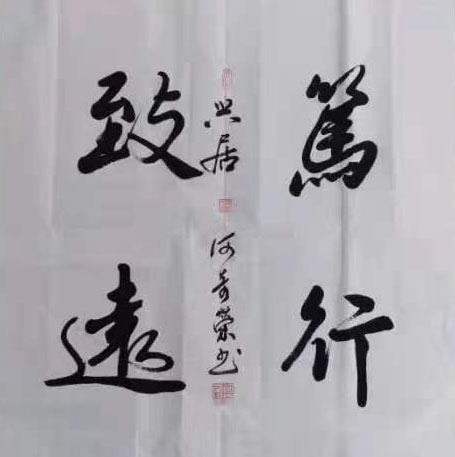 篤行
致遠
興居
何奇榮书